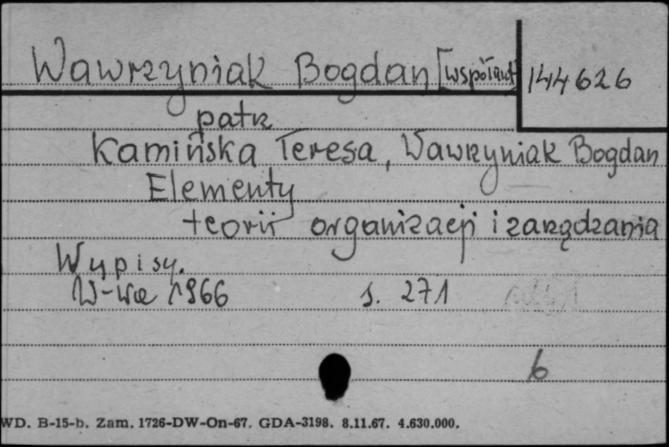 Wawrzyniak Bogdan [współaut] 144626
patrz
Kamińska Teresa, Wawrzyniak Bogdan
Elementy
teorii organizacji i zarządzania
Wypisy.
W-wa 1966 s. 271
6
WD. B-15-b. Zam. 1726-DW-On-67. GDA-3198. 8.11.67. 4.630.000.